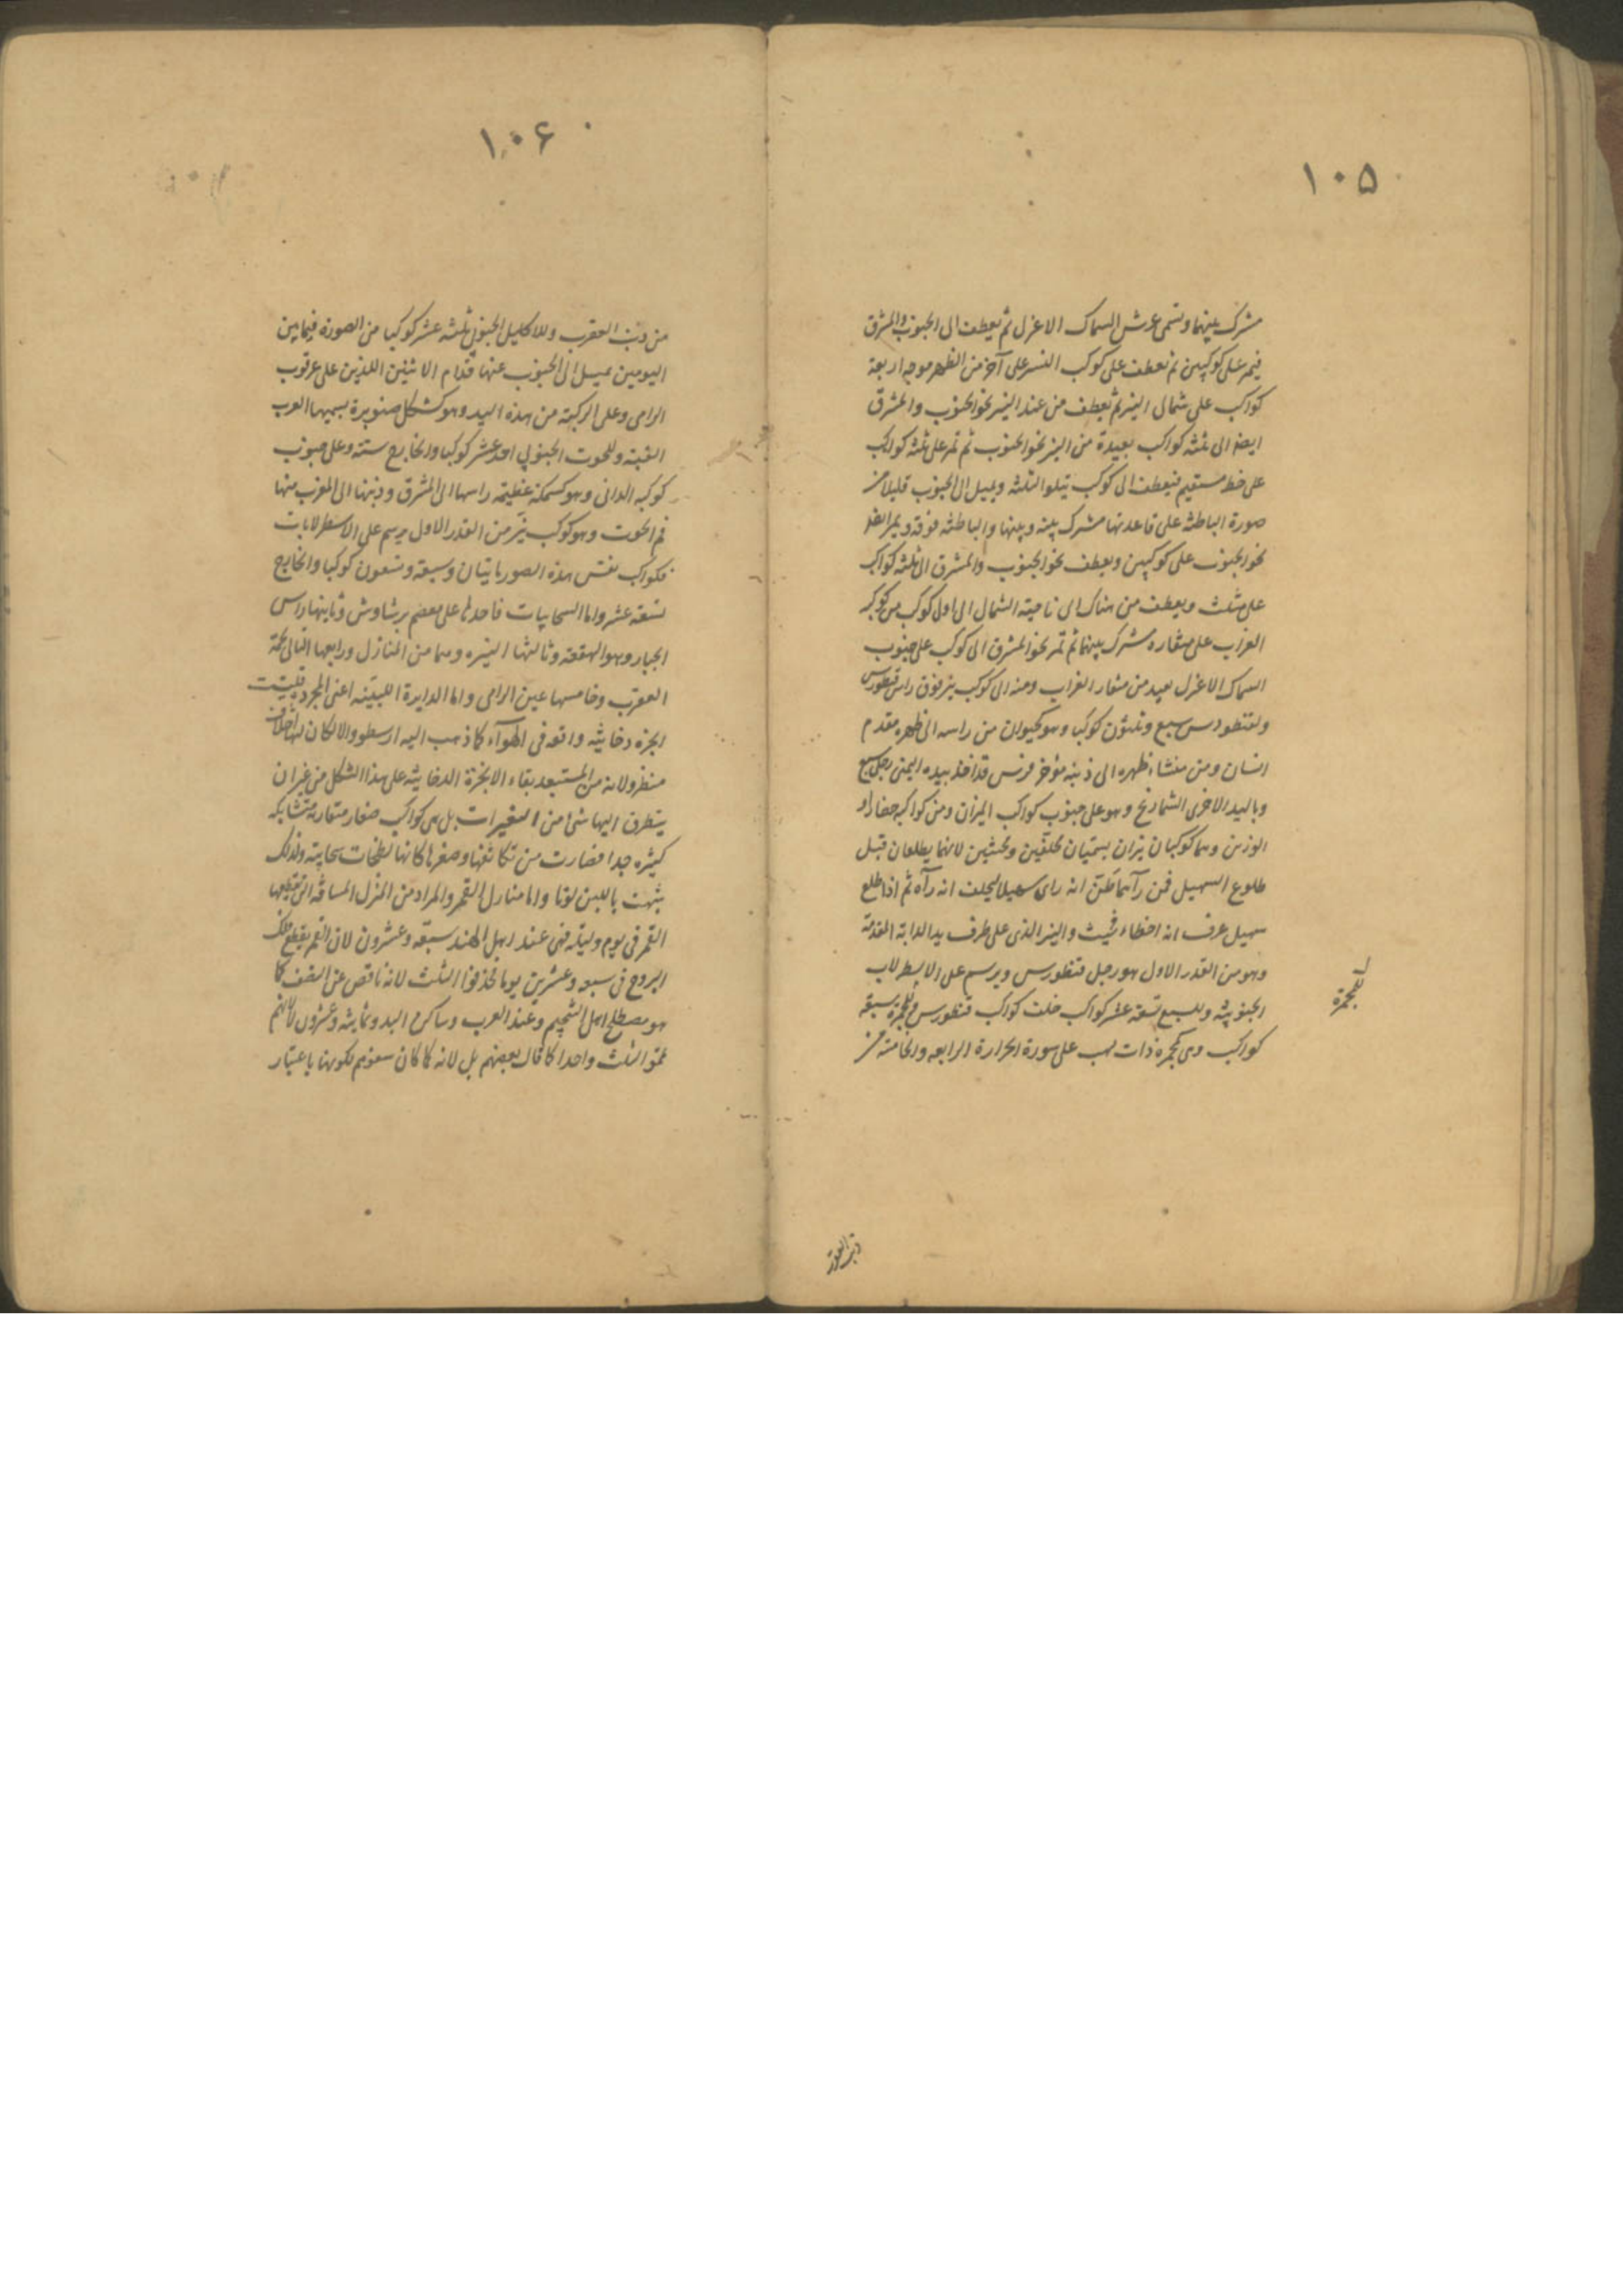 ١٠٥
مشترك بينهما وتسمى عرش السماك الاعزل ثم يعطف الى الجنوب والمشرق
فيمر على كوكبين ثم تعطف على كوكب النسر على آخر من الظهر موجه اربعة
كواكب على شمال النير ثم تعطف من عند النير نحو الجنوب والمشرق
ايضا الى ثلثة كواكب بعيدة من النير نحو الجنوب ثم تمر على ثلثة كواكب
على خط مستقيم فيعطف الى كوكب يتلو الثلثة ويميل الى الجنوب قليلا من
صورة الباطئة على قاعدتها مشترك بينه وبينها والباطئة فوقه ويمر ايضا
نحو الجنوب على كوكبين ويعطف نحو الجنوب والمشرق الى ثلثة كواكب
على مثلث ويعطف من هناك الى ناحية الشمال الى اول كوكب من كواكب
الغراب على منقاره مشترك بينهما ثم تمر نحو المشرق الى كوكب على جنوب
السماك الاعزل بعيد من منقار الغراب ومنه الى كوكب نير فوق راس قنطورس
ولقنطورس سبع وثلثون كوكبا وهو كحيوان من راسه الى ظهره مقدم
انسان ومن منشاء ظهره الى ذنبه مؤخر فرس قد اخذ بيده اليمنى رجل سبع
وباليد الاخرى الشماريخ وهو على جنوب كواكب الميزان ومن كواكبه حضار و
الوزن وهما كوكبان نيران يسميان محلفين ومحنثين لانهما يطلعان قبل
طلوع السهيل فمن رآهما ظن انه راى سهيلا ليحلف انه رآه ثم اذا طلع
سهيل عرف انه اخطاء فحنث والنير الذى على طرف يد الدابة المقدمة
وهو من القدر الاول هو رجل قنطورس ويرسم على الاسطرلاب
الجنوبية وللسبع تسعة عشر كواكب خلف كواكب قنطورس وللمجمرة سبعة
كواكب وهى كمجمرة ذات لهب على سورة الحرارة الرابعه والخامسة من
للمجمرة
ذنب العقرب
١٠۶
من ذنب العقرب وللاكليل الجنوبى ثلثة عشر كوكبا من الصورة فيما بين
اليومين يميل الى الجنوب عنها قدام الاثنين اللذين على عرقوب
الرامى وعلى الركبة من هذه اليد وهو كشكل صنوبرة يسميها العرب
القبة وللحوت الجنوبى احد عشر كوكبا والخارج ستة وعلى جنوب
كوكبه الدانى وهو كسمكة عظيمة راسها الى المشرق وذنبها الى المغرب منها
فم الحوت وهو كوكب نير من القدر الاول يرسم على الاسطرلابات
فكواكب نفس هذه الصور مايتان وسبعة وتسعون كوكبا والخارج
تسعة عشر واما السحابيات فاحدها على معصم برشاوش وثانيتها راس
الجبار وهو الهقعة وثالثتها النيره وهما من المنازل ورابعها التالى لحمة
العقرب وخامسها عين الرامى واما الدايرة اللبينه اعنى المجرة فليست
ابخره دخانية واقعه فى الهواء كما ذهب اليه ارسطو والا لكان لها اختلاف
منظر ولانه من المستبعد بقاء الابخرة الدخانية على هذا الشكل من غير ان
يتطرق اليها شئ من التغيرات بل هى كواكب صغار متقاربة متشابكه
كثيره جدا فصارت من تكاثفها وصغرها كانها لطخات سحابية ولذلك
شبهت باللبن لونا واما منازل القمر والمراد من المنزل المسافة التى يقطعها
القمر فى يوم وليلة فهى عند اهل الهند سبعة وعشرون لان القمر يقطع فلك
البروج فى سبعه وعشرين يوما فحذفوا الثلث لانه ناقص عن النصف كما
هو مصطلح اهل التنجيم وعند العرب وساكنى البد وثمانية وعشرون لانهم
تمموا الثلث واحدا كما قال بعضهم بل لانه كما كان سنوهم لكونها باعتبار